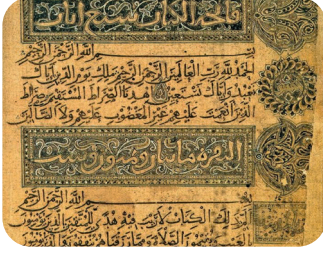 فاتحة الكتاب سبع ايات
بسم الله الرحمن الرحيم
الحمد لله رب العالمين الرحمن الرحيم ملك يوم الدين اياك
نعبد واياك نستعين اهدنا الصراط المستقيم صراط
الذين انعمت عليهم غير المغضوب عليهم ولا الضالين
البقرة مائتان وست
بسم الله الرحمن الرحيم
الم ذلك الكتاب لا ريب فيه هدى للمتقين الذين يؤمنون
بالغيب ويقيمون الصلاة ومما رزقناهم ينفقون والذين يؤمنون